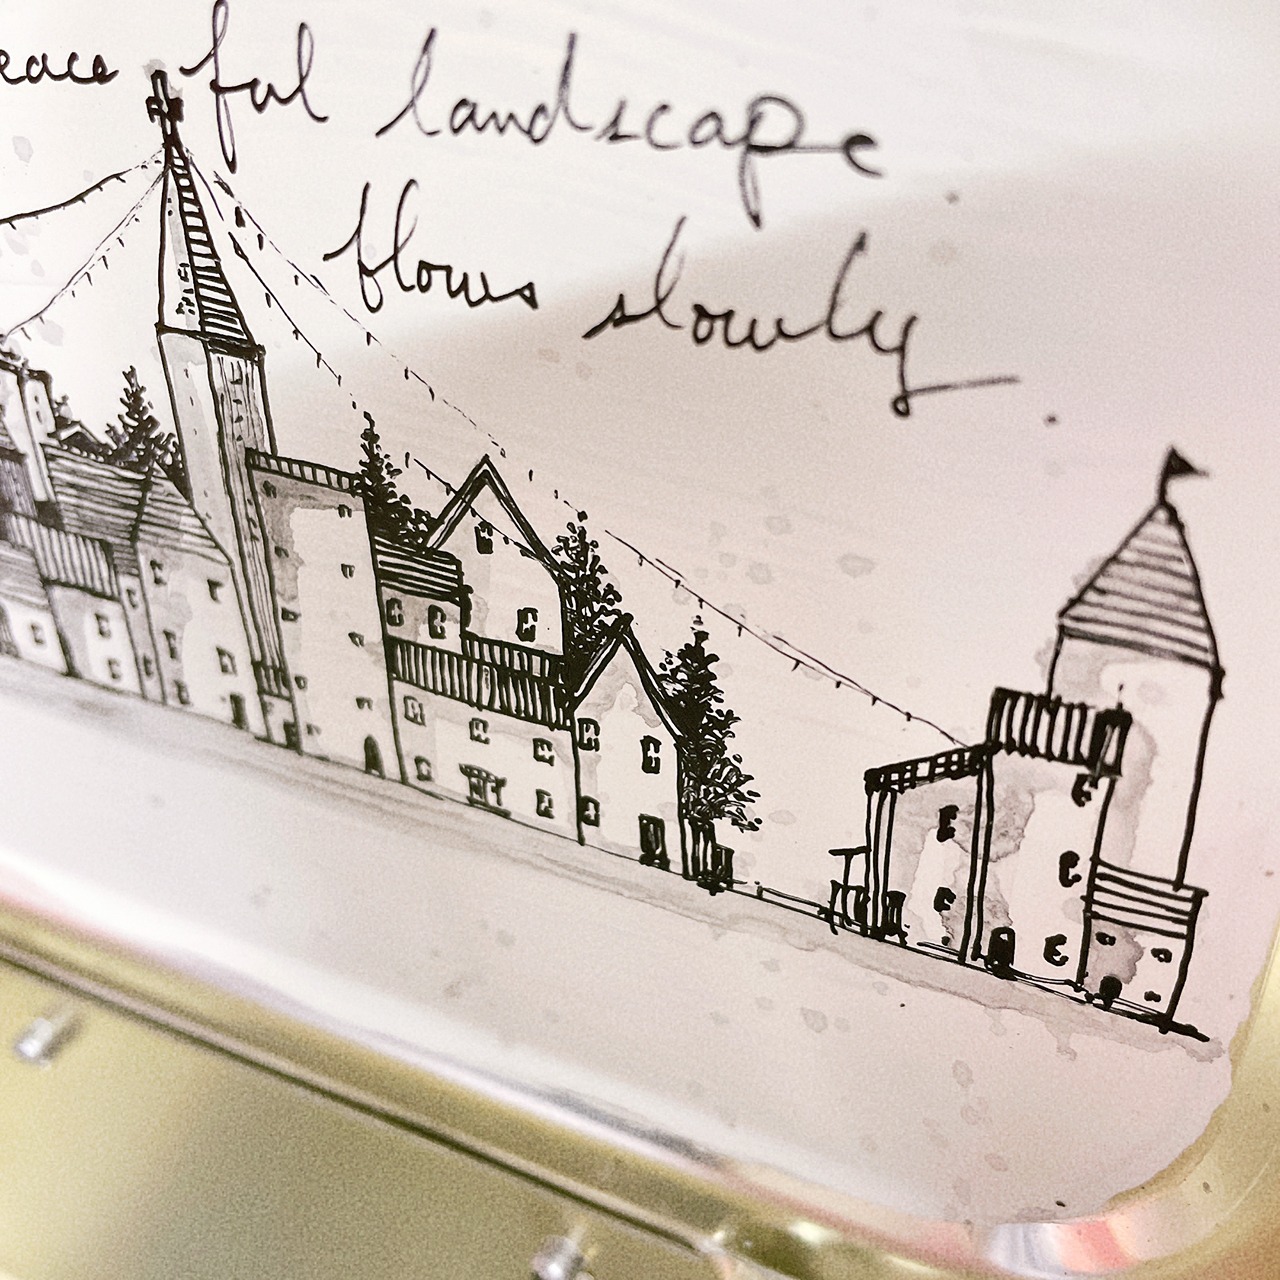 eace ful landscape
flows slowly